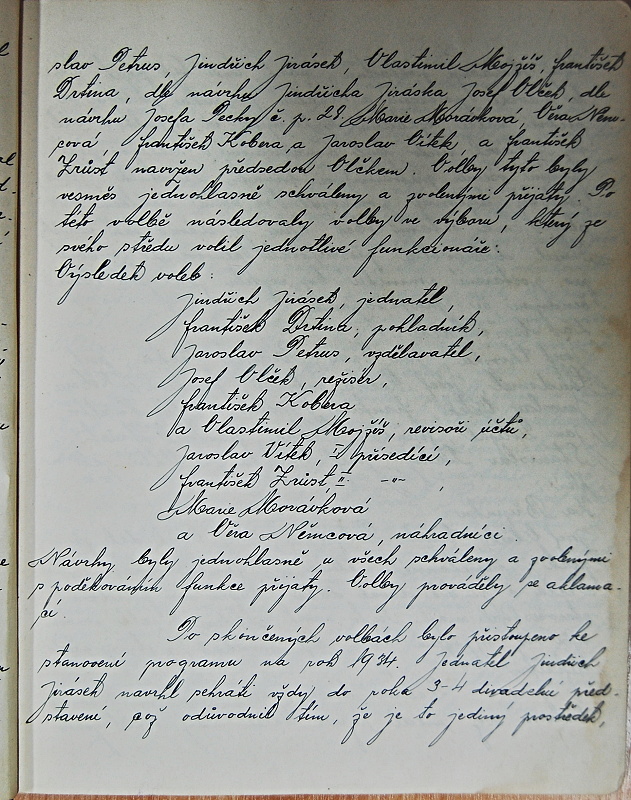 slav Petrus, Jindřich Jirásek, Vlastimil Mojžíš, František
Drtina, dle návrhu Jindřicha Jiráska Josef Vlček, dle
návrhu Josefa Pecky č. p. 28. Marie Morávková, Věra Něm-
cová, František Kobera a Jaroslav Vítek, a František
Zrůst navržen předsedou Vlčkem. Volby tyto byly
vesměs jednohlasně schváleny a zvolenými přijaty. Po
této volbě následovaly volby ve výboru, který ze
svého středu volil jednotlivé funkcionáře:
Výsledek voleb:
Jindřich Jirásek, jednatel,
František Drtina, pokladník,
Jaroslav Petrus, vzdělavatel,
Josef Vlček, režisér,
František Kobera
a Vlastimil Mojžíš, revisoři účtů,
Jaroslav Vítek, I. přísedící,
František Zrůst, II. -"- ,
Marie Morávková
a Věra Němcová, náhradníci.
Návrhy byly jednohlasně u všech schváleny a zvolenými
s poděkováním funkce přijaty. Volby prováděly se aklama-
cí.
Po skončených volbách bylo přistoupeno ke
stanovení programu na rok 1934. Jednatel Jindřich
Jirásek navrhl sehrát vždy do roka 3-4 divadelní před-
stavení, což odůvodnil tím, že je to jediný prostředek,